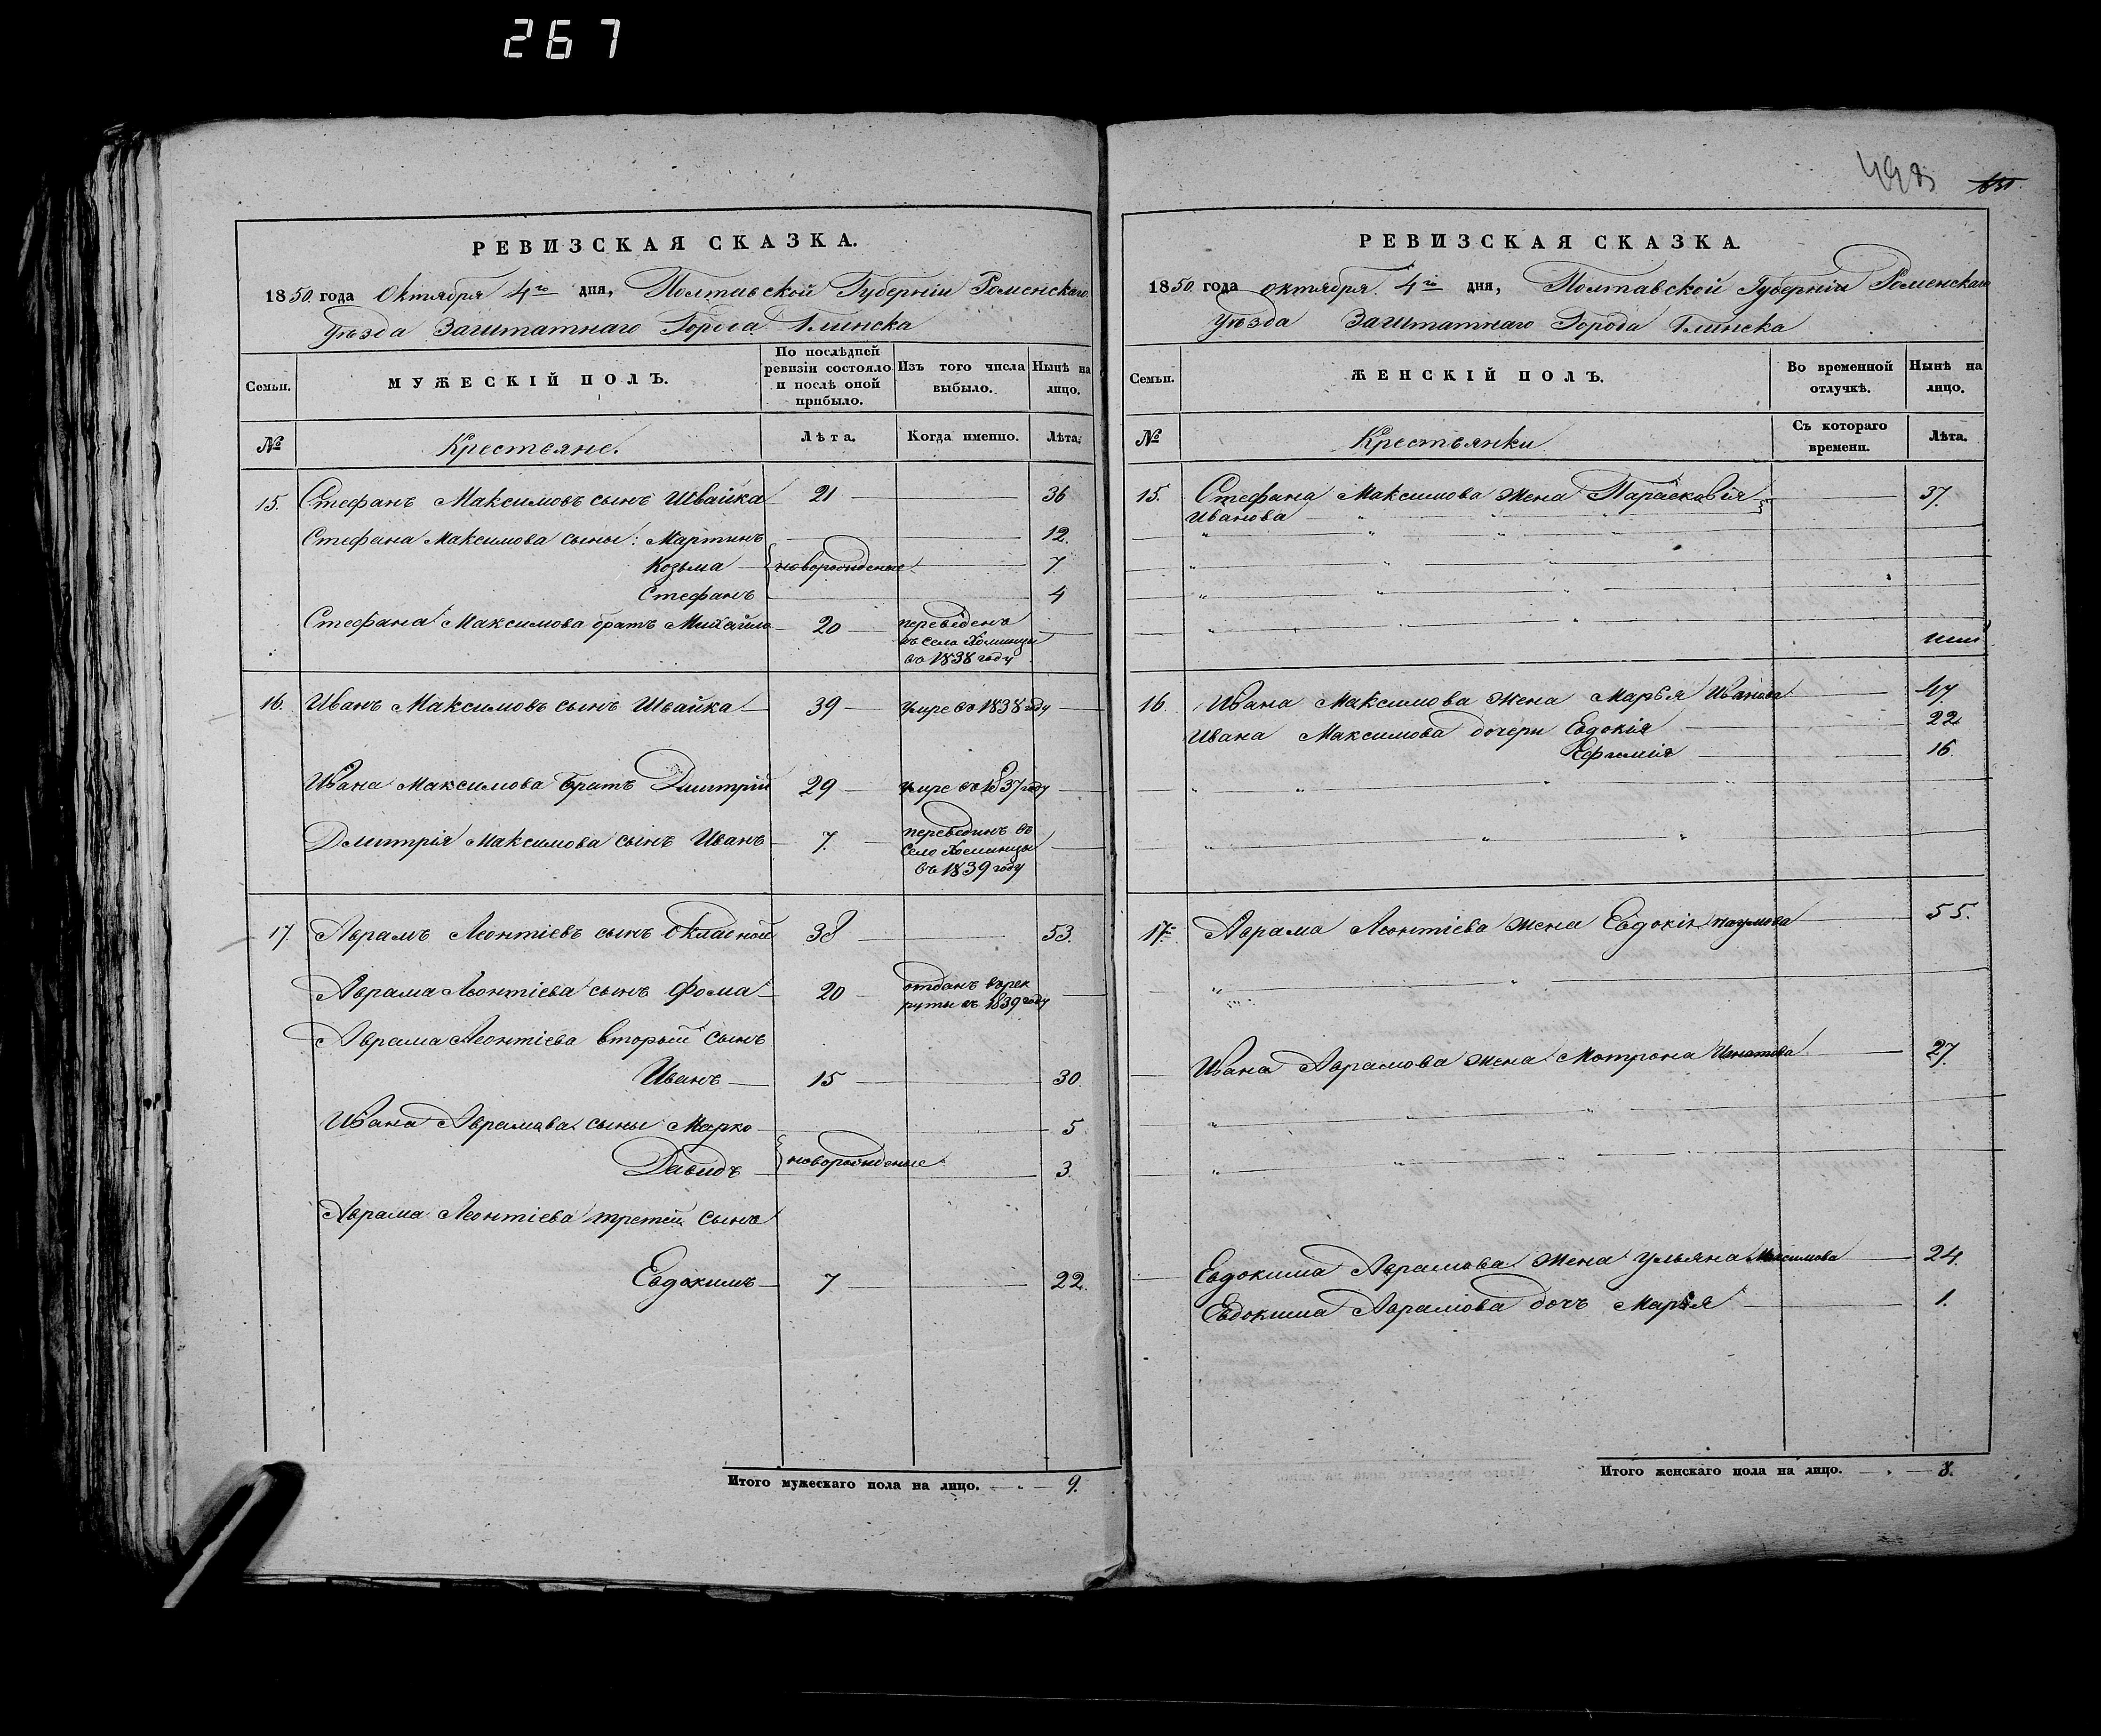 267
498
РЕВИЗСКАЯ СКАЗКА.
1850 года Октября 4го дня, Полтавской Губерніи Роменскаго
Уѣзда Заштатнаго Города Глинска
Семьи.
МУЖЕСКІЙ ПОЛЪ.
По послѣдней ревизіи состояло и послѣ оной прибыло.
Изъ того числа выбыло.
Нынѣ на лицо.
№
Крестьяне.
Лѣта.
Когда именно.
Лѣта.
15. Стефанъ Максимовъ сынъ Швайка 21 36
Стефана Максимова сыны: Мартинъ 12.
Козьма новорожденые 7
Стефанъ 4
Стефана Максимова братъ Михайло 20 переведенъ
въ село Хоминцы
въ 1838 году
16. Иванъ Максимовъ сынъ Швайка 39 умре въ 1838 году
Ивана Максимова братъ Дмитрій 29 умре въ 1837 году
Дмитрія Максимова сынъ Иванъ 7. перевединъ въ
село Хоминцы
въ 1839 году
17. Аврамъ Леонтіевъ сынъ 38 53.
Аврама Леонтіева сынъ Фома 20 отданъ врек
руты въ 1839 году
Аврама Леонтіева вторый сынъ
Иванъ 15 30.
Ивана Аврамова сыны Марко 5
Давидъ новорожденые 3.
Аврама Леонтіева третей сынъ
Евдокимъ 7 22.
Итого мужескаго пола на лицо. 9.
РЕВИЗСКАЯ СКАЗКА.
1850 года октября 4го дня, Полтавской Губерніи Роменскаго
Уѣзда Заштатнаго Города Глинска
Семьи.
ЖЕНСКІЙ ПОЛЪ.
Во временной отлучкѣ.
Нынѣ на лицо.
№
Крестьянки
Съ котораго времени.
Лѣта.
15. Стефана Максимова жена Параскавія 37.
Иванова
16. Ивана Максимова жена Марья Иванова 47.
Ивана Максимова дочери Евдокія 22
Ефимія 16.
17. Аврама Леонтіева жена Евдокія Наумова 55.
Ивана Аврамова жена Мотрона Игнатова 27.
Евдокима Аврамова жена Ульяна Максимова 24.
Евдокима Аврамова дочъ Марья 1.
Итого женскаго пола на лицо. 8.